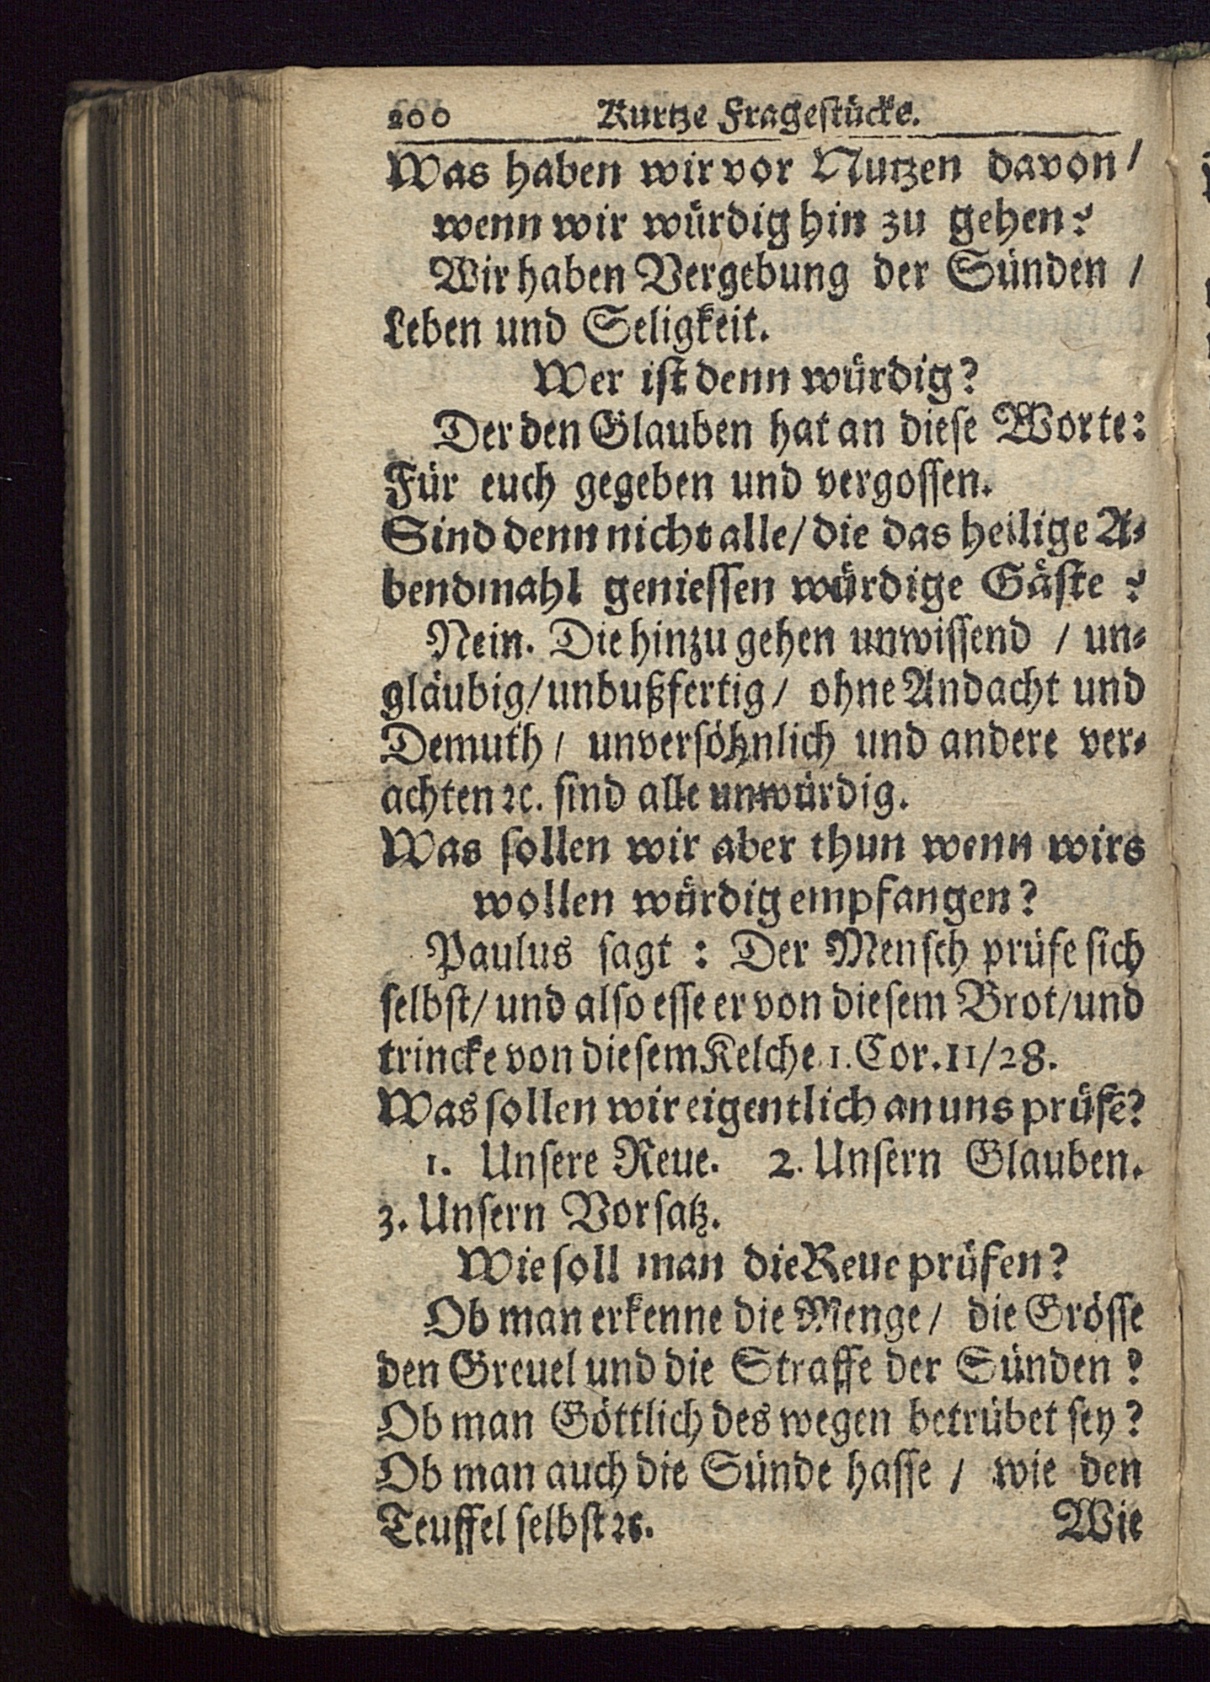 200 Kurtze Fragestücke.
Was haben wir vor Nutzen davon /
wenn wir würdig hin zu gehen?
Wir haben Vergebung der Sünden /
Leben und Seligkeit.
Wer ist denn würdig?
Der den Glauben hat an diese Worte:
Für euch gegeben und vergossen.
Sind denn nicht alle / die das heilige A-
bendmahl geniessen würdige Gäste ?
Nein. Die hinzu gehen unwissend / un-
gläubig / unbußfertig / ohne Andacht und
Demuth / unversöhnlich und andere ver-
achten ꝛc. sind alle unwürdig.
Was sollen wir aber thun wenn wirs
wollen würdig empfangen?
Paulus sagt : Der Mensch prüfe sich
selbst / und also esse er von diesem Brot / und
trincke von diesem Kelche 1. Cor. 11/28.
Was sollen wir eigentlich an uns prüfē?
1. Unsere Reue. 2. Unsern Glauben.
3. Unsern Vorsatz.
Wie soll man die Reue prüfen?
Ob man erkenne die Menge / die Grösse
den Greuel und die Straffe der Sünden ?
Ob man Göttlich des wegen betrübet sey ?
Ob man auch die Sünde hasse / wie den
Teuffel selbst ꝛc. Wie